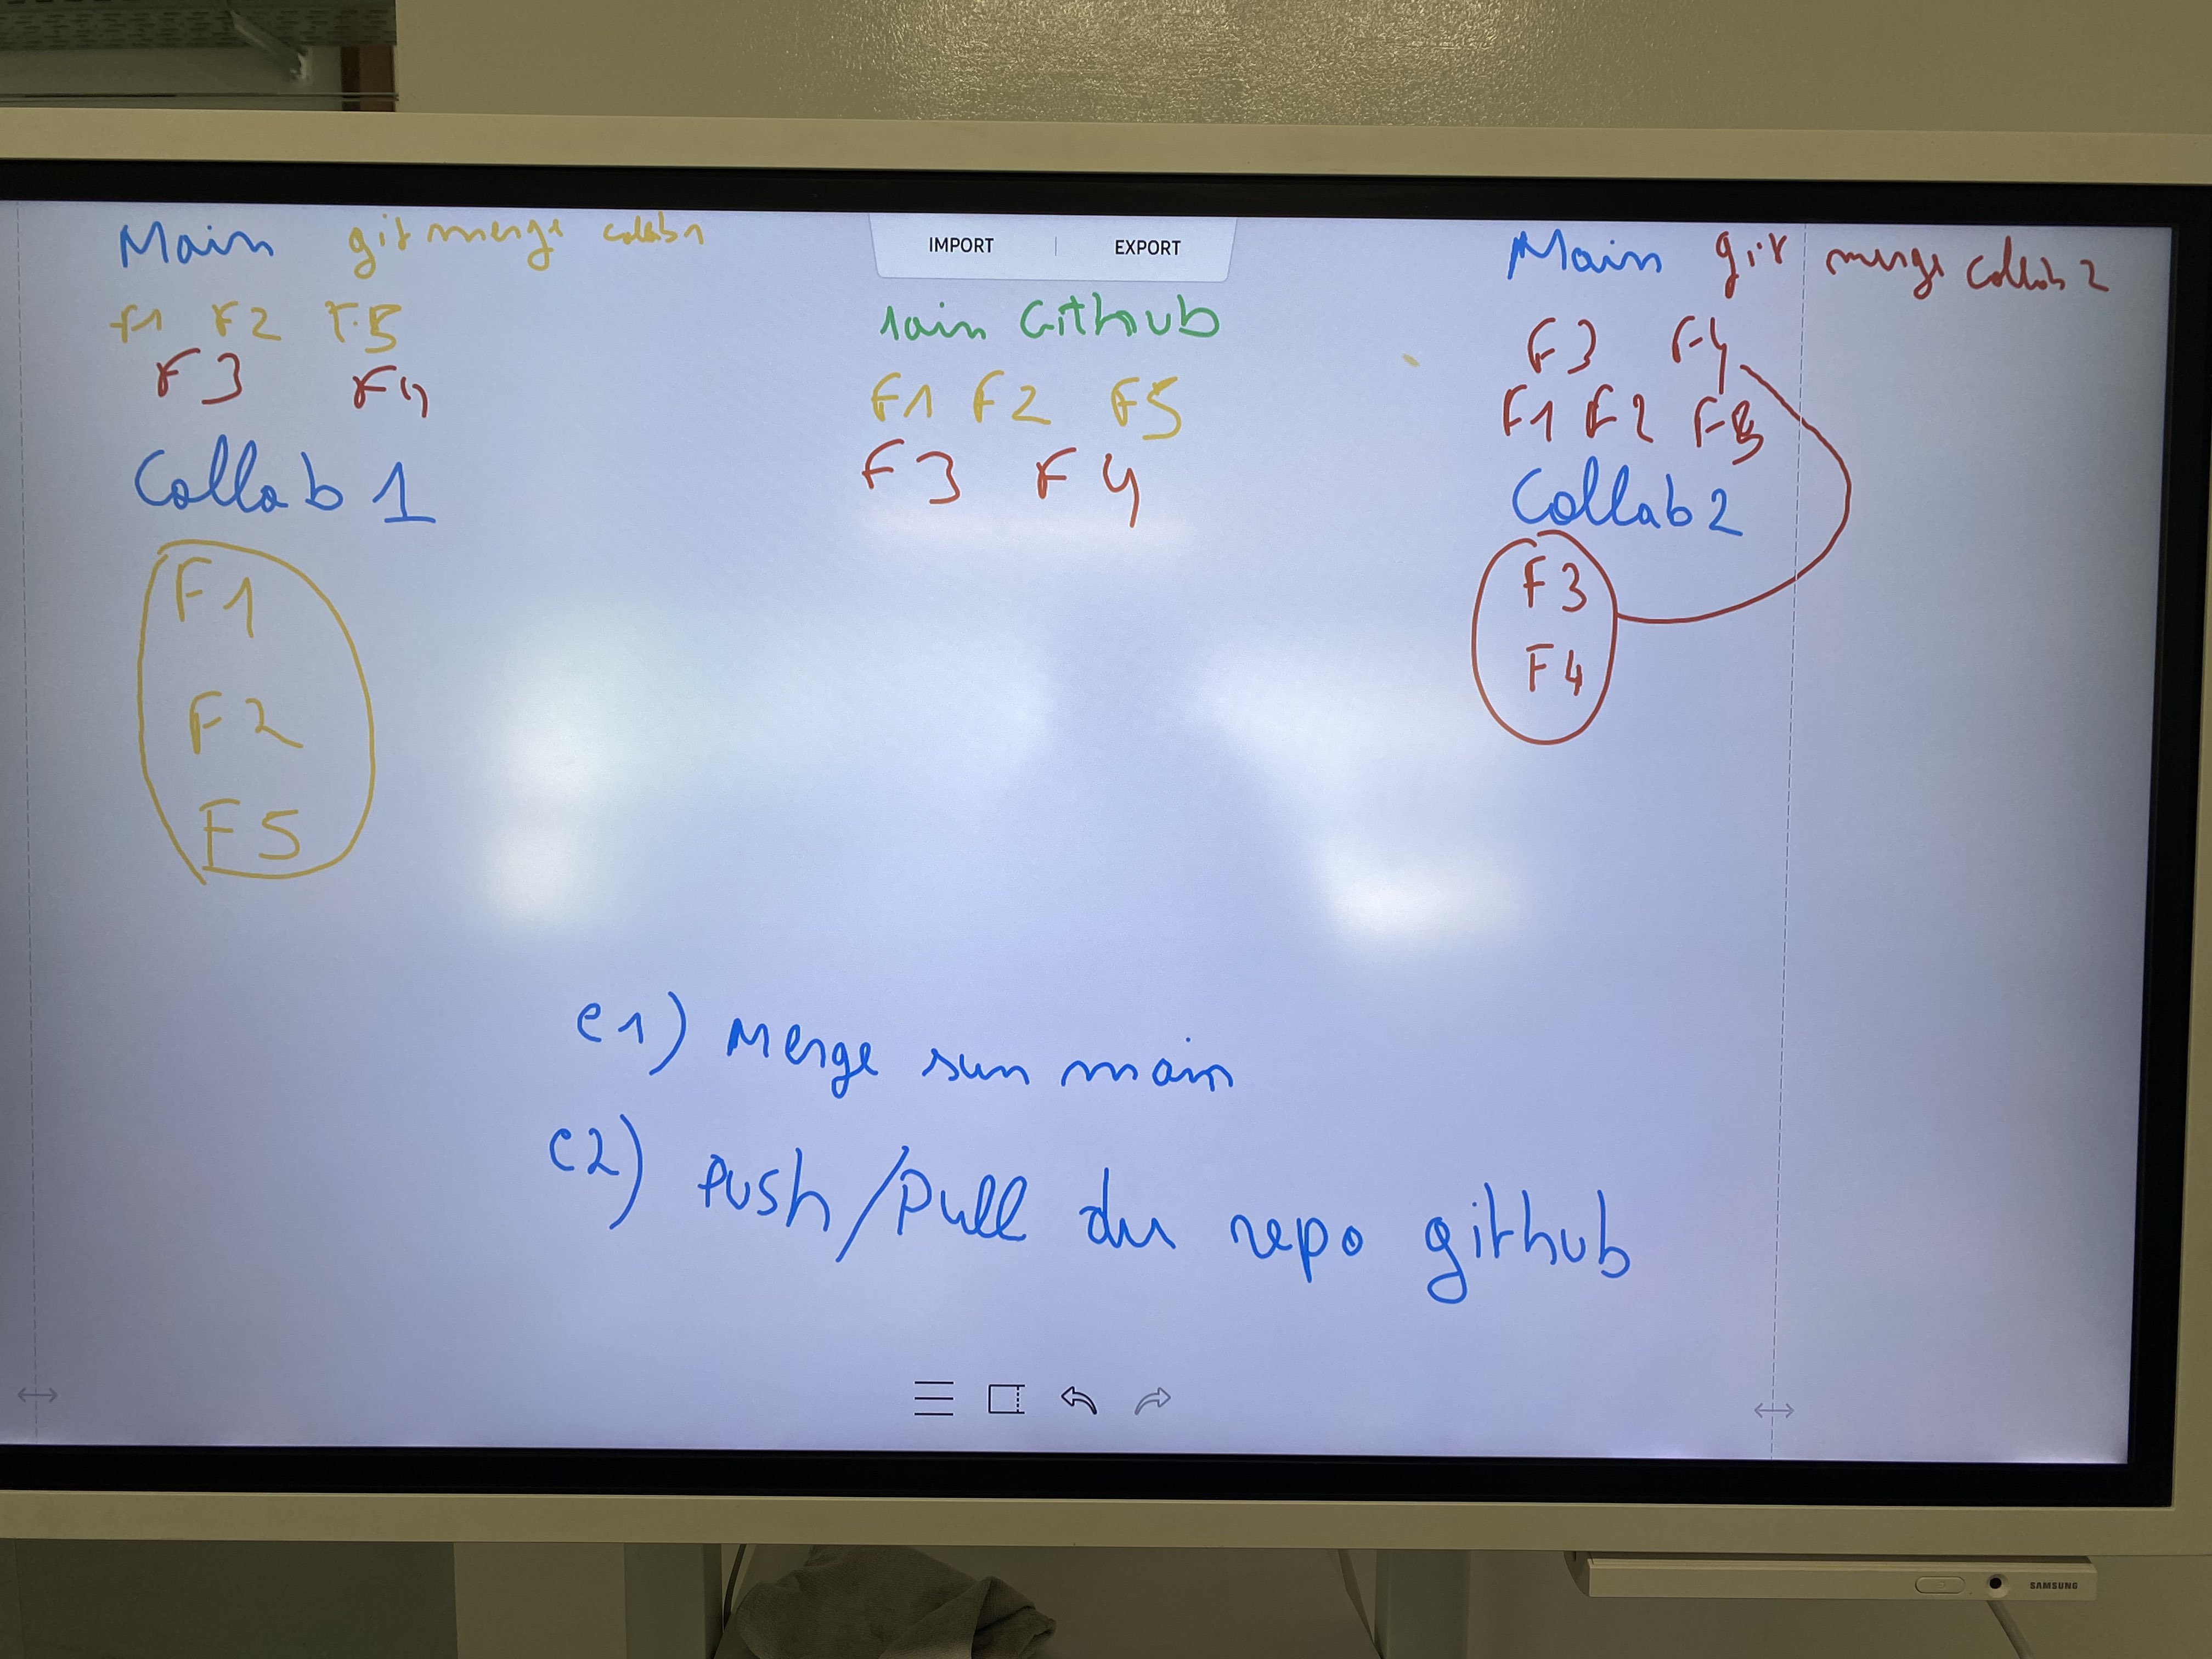 Main git merge collab1
F1 F2 F5
F3 F4
Collab 1
F1
F2
F5
IMPORT EXPORT
1ain Github
F1 F2 F5
F3 F4
Main git merge collab 2
F3 F4
F1 F2 F5
Collab 2
F3
F4
e1) Merge sur main
e2) Push/Pull du repo github
SAMSUNG